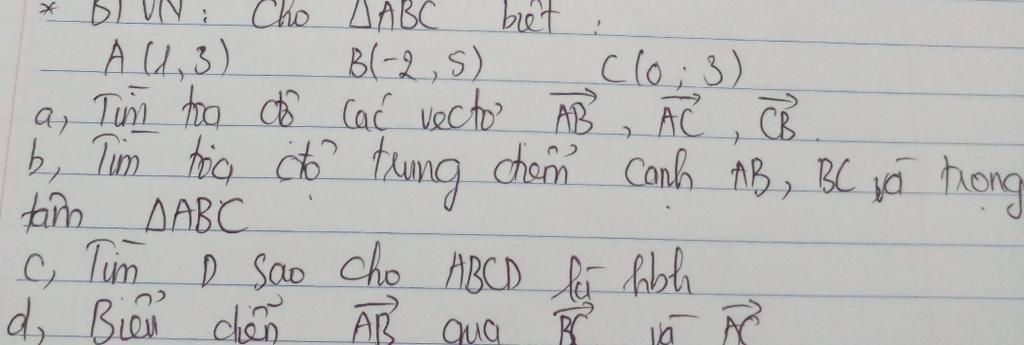 * BTVN : Cho ΔABC biết :
A (1, 3) B(-2, 5) C(0 ; 3)
a, Tìm tọa độ các vectơ $\overrightarrow{AB}$, $\overrightarrow{AC}$, $\overrightarrow{CB}$.
b, Tìm tọa độ trung điểm cạnh AB, BC và trọng
tâm ΔABC
c, Tìm D sao cho ABCD là hbh
d, Biểu diễn $\overrightarrow{AB}$ qua $\overrightarrow{BC}$ và $\overrightarrow{AC}$